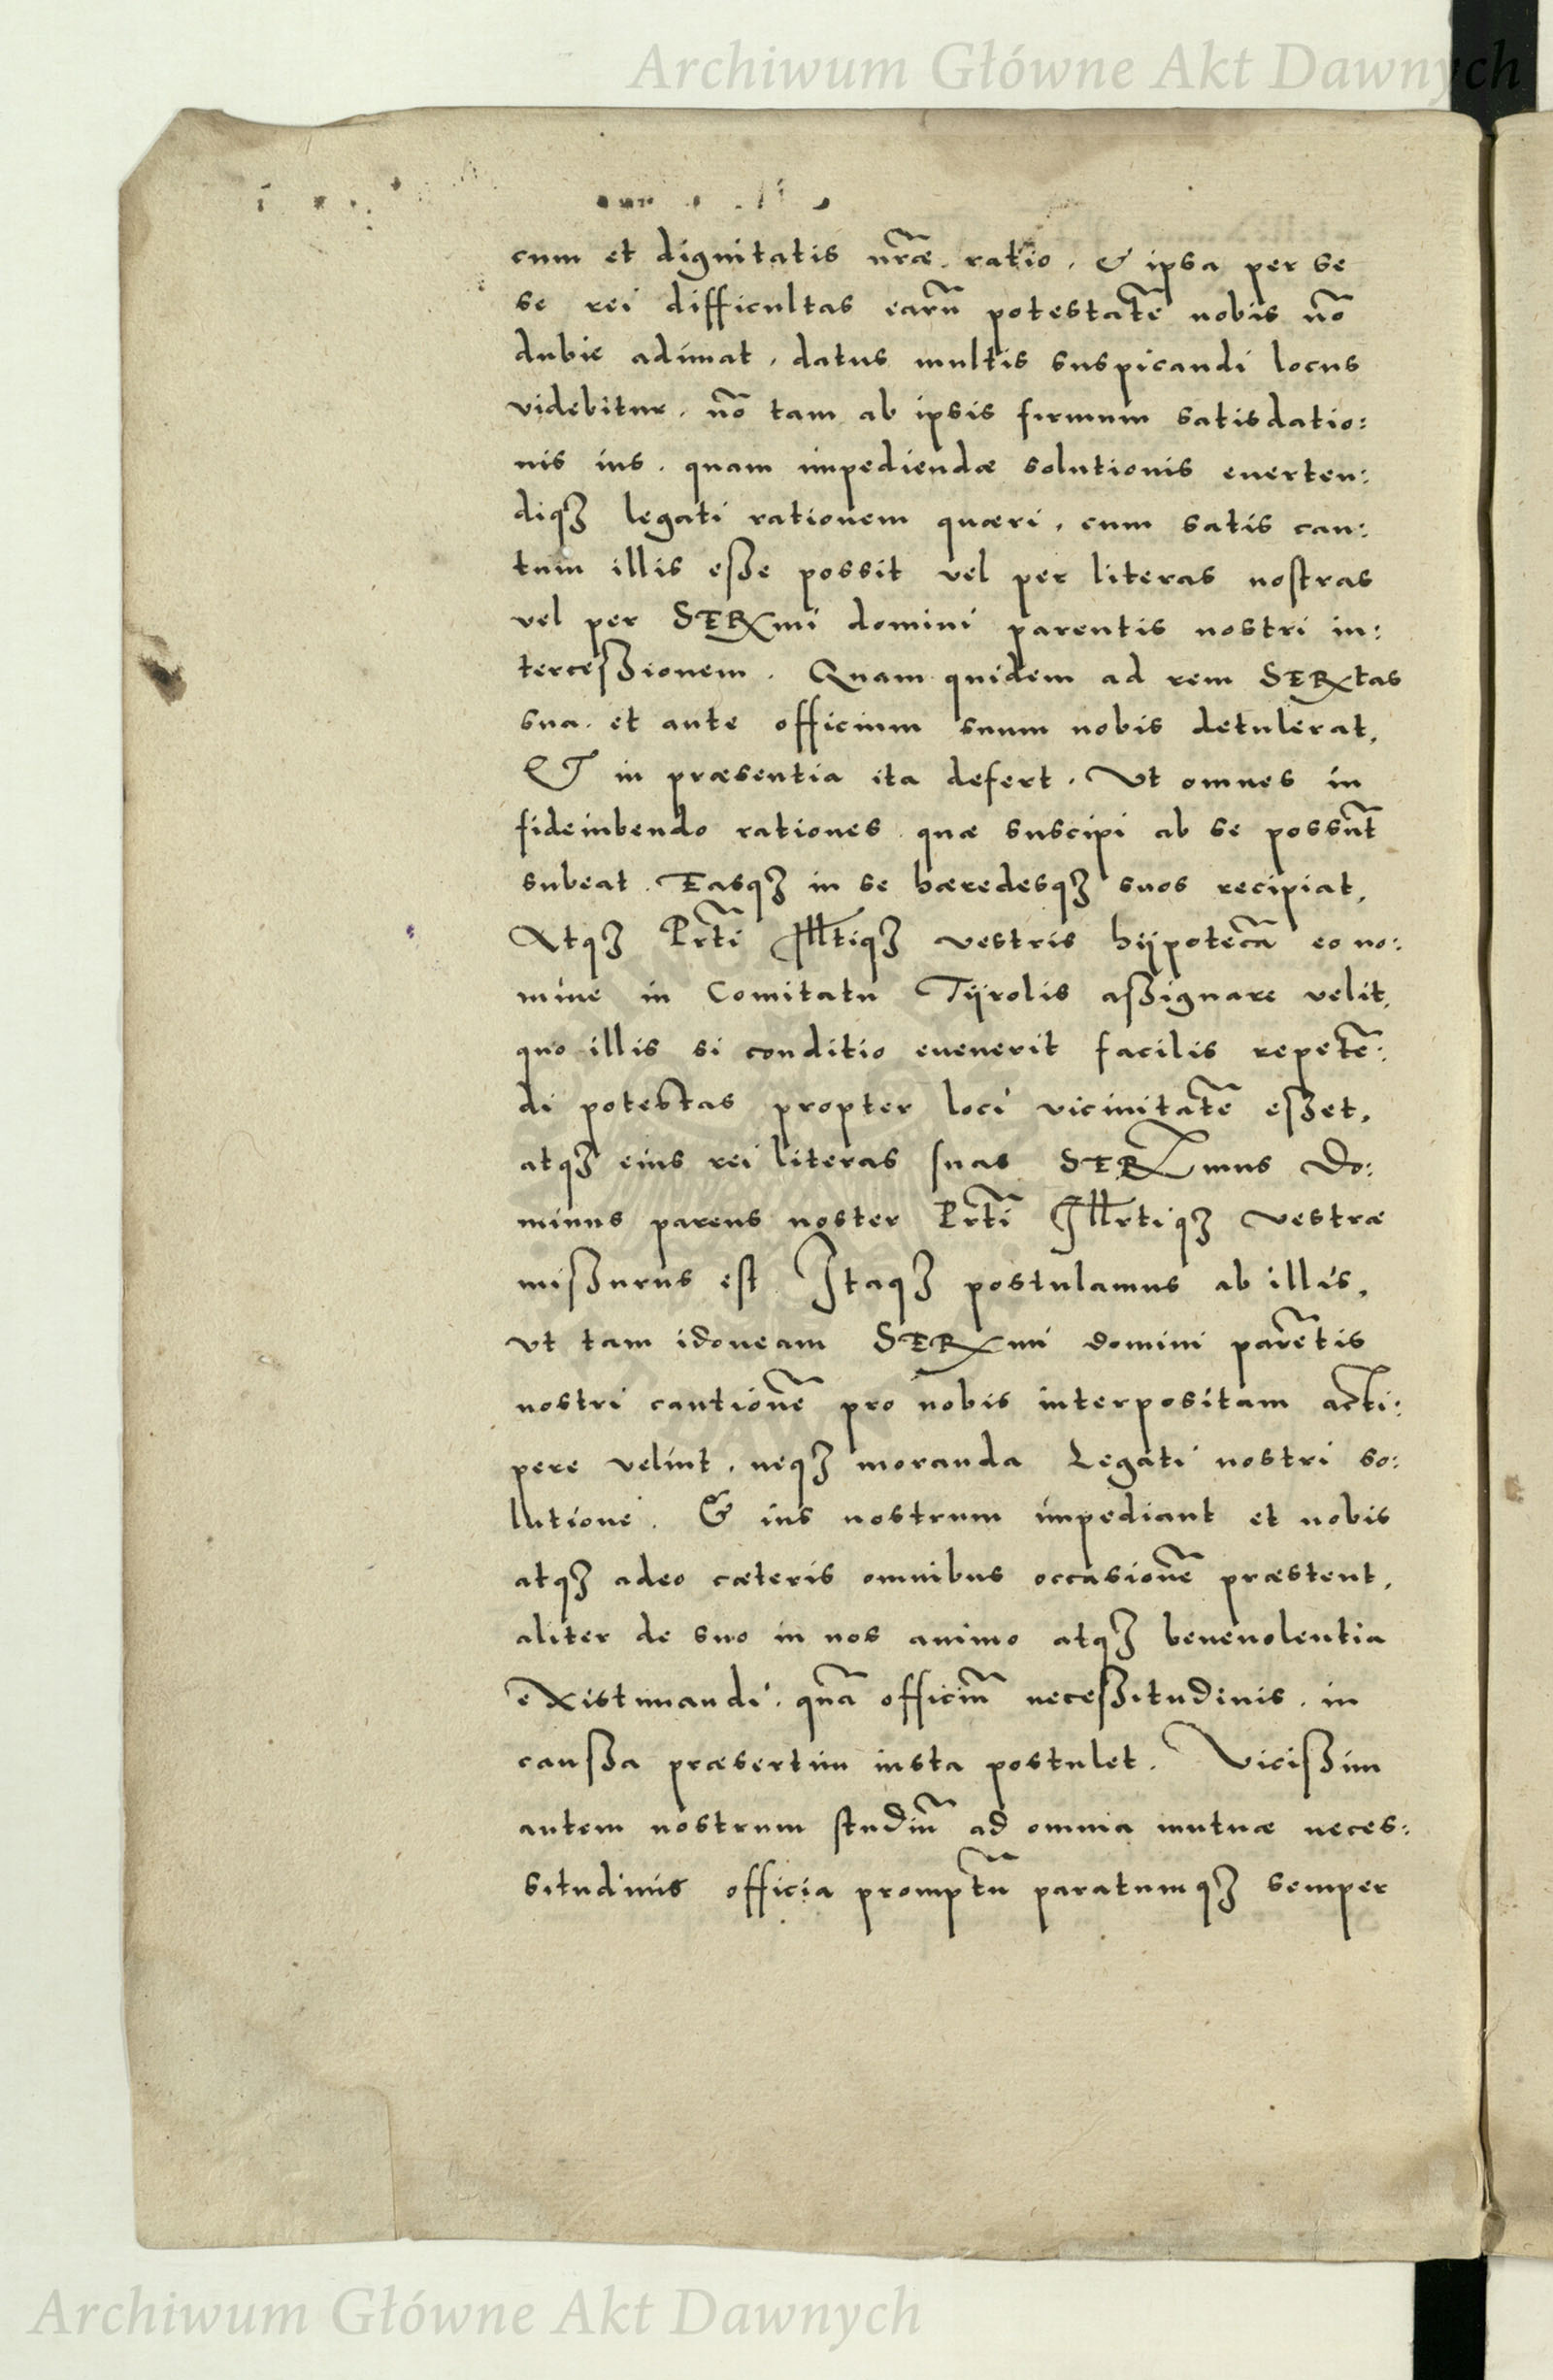 Archiwum Główne Akt Dawnych
cum et dignitatis nr̃æ ratio, & ipsa per se
se rei difficultas earũ potestatẽ nobis nõ
dubie adimat, datus multis suspicandi locus
videbitur, nõ tam ab ipsis firmum satisdatio:
nis ius, quam impediendæ solutionis euerten:
diqꝫ legati rationem quæri, cum satis cau:
tum illis eße possit vel per literas nostras
vel per SERmi domini parentis nostri in:
terceßionem. Quam quidem ad rem SERtas
sua et ante officium suum nobis detulerat,
Et in præsentia ita defert. Ut omnes in
fideiubendo rationes quæ suscipi ab se possũt
subeat. Easqꝫ in se hæredesqꝫ suos recipiat,
Atqꝫ Prti͂ Illtiqꝫ vestris hÿpotecã eo no:
mine in Comitatu Tÿrolis aßignare velit,
quo illis si conditio euenerit facilis repetẽ:
di potestas propter loci vicinitatẽ eßet,
atqꝫ eius rei literas suas SERmus Do:
minus parens noster Prti͂ Illrtiqꝫ vestræ
mißurus est. Itaqꝫ postulamus ab illis,
vt tam idoneam SERmi domini parẽtis
nostri cautionẽ pro nobis interpositam acti:
pere velint, neqꝫ moranda Legati nostri so:
lutione. & ius nostrum impediant et nobis
atqꝫ adeo cæteris omnibus occasionẽ præstent,
aliter de suo in nos animo atqꝫ beneuolentia
existimandi, quã officiũ neceßitudinis, in
caußa præsertim iusta postulet. Vicißim
autem nostrum studiũ ad omnia mutuæ neces:
situdinis officia promptũ paratumqꝫ semper
Archiwum Główne Akt Dawnych